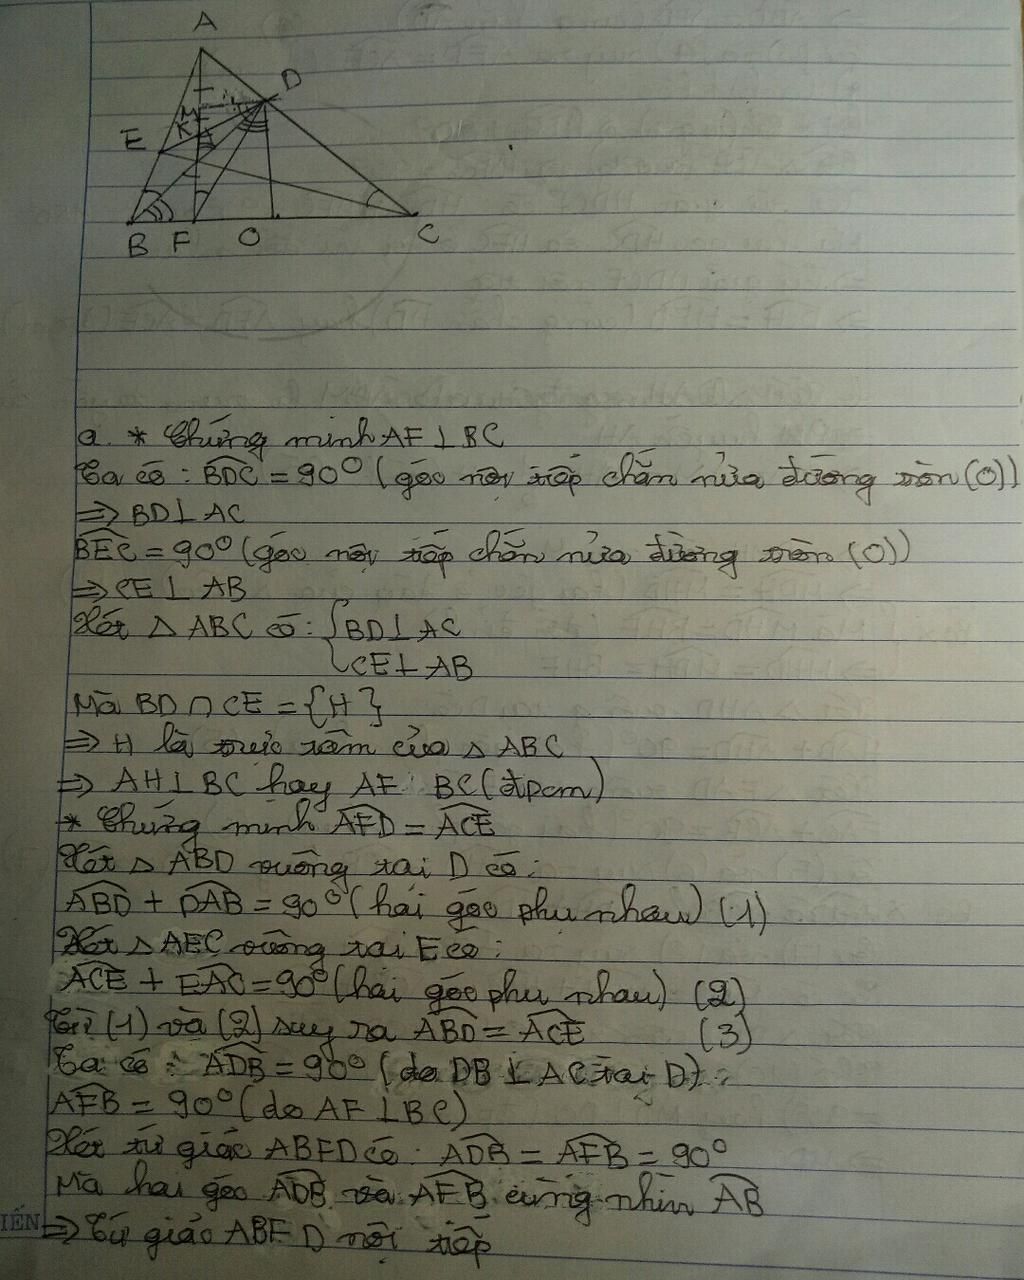 A
D
M
E K
B F O C
a. * Chứng minh AF ⊥ BC
Ta có : BDC = 90° (góc nội tiếp chắn nửa đường tròn (O))
=> BD ⊥ AC
BEC = 90° (góc nội tiếp chắn nửa đường tròn (O))
=> CE ⊥ AB
Xét △ ABC có : { BD ⊥ AC
CE ⊥ AB
Mà BD ∩ CE = {H}
=> H là trực tâm của △ ABC
=> AH ⊥ BC hay AF BC (đpcm)
* Chứng minh AFD = ACE
Xét △ ABD vuông tại D có :
ABD + DAB = 90° (hai góc phụ nhau) (1)
Xét △ AEC vuông tại E có :
ACE + EAC = 90° (hai góc phụ nhau) (2)
Từ (1) và (2) suy ra ABD = ACE (3)
Ta có : ADB = 90° (do DB ⊥ AC tại D) ;
AFB = 90° (do AF ⊥ BC)
Xét tứ giác ABFD có : ADB = AFB = 90°
Mà hai góc ADB và AFB cùng nhìn AB
IẾN => Tứ giác ABFD nội tiếp